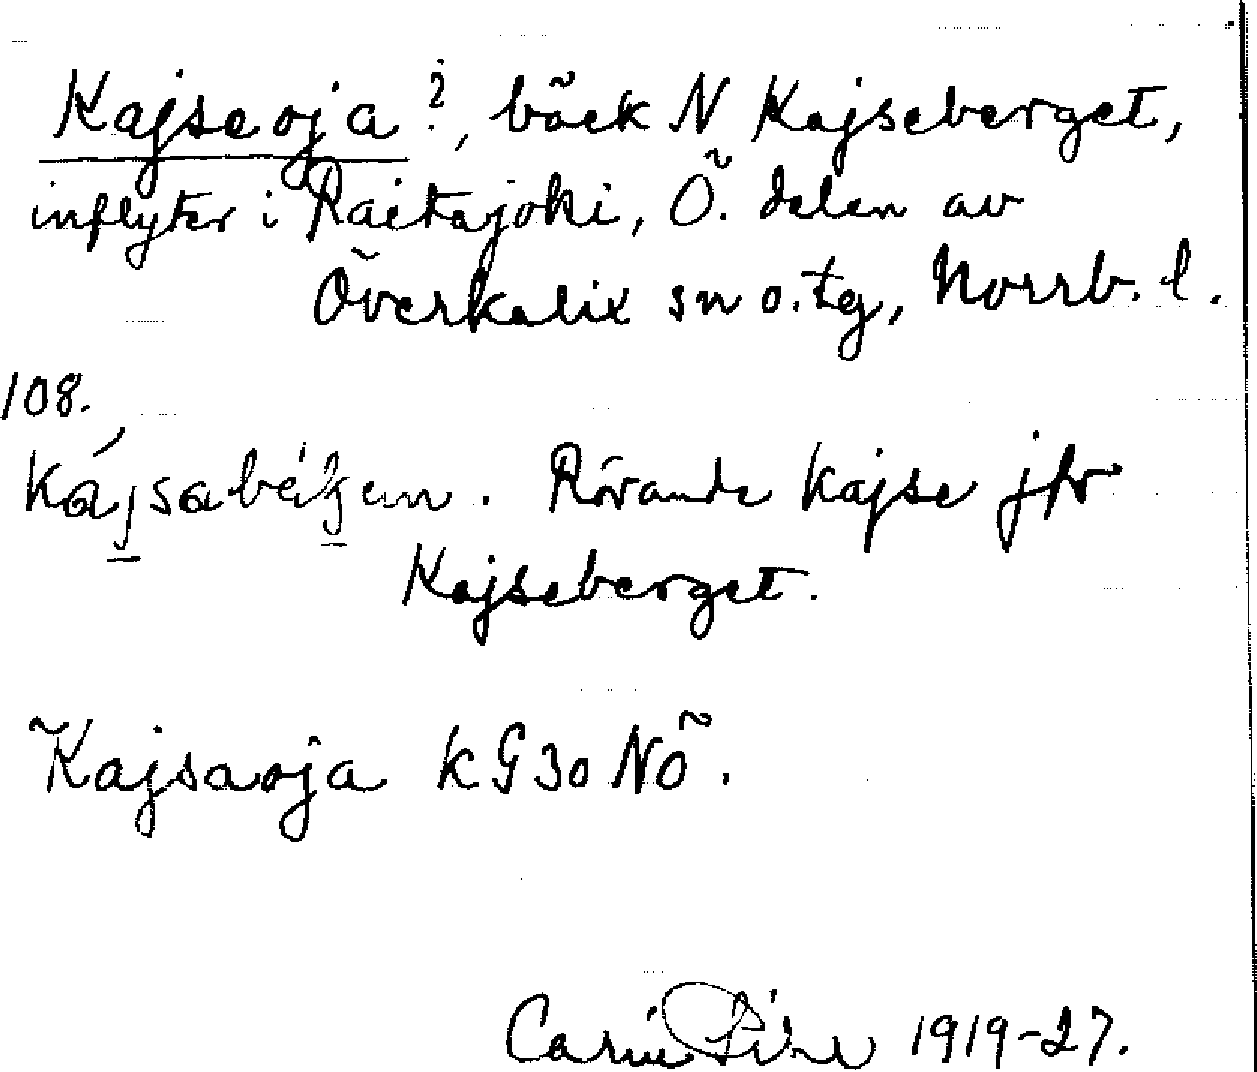 Kajseoja?, bäck N Kajseberget,
inflyter i Raitajoki, Ö. delen av
Överkalix sn o. tg, Norrb. l.
108.
Rörande Kajse jfr
Kajseberget.
Kajsaoja KG 30 NÖ.
Carin Pihl 1919-27.